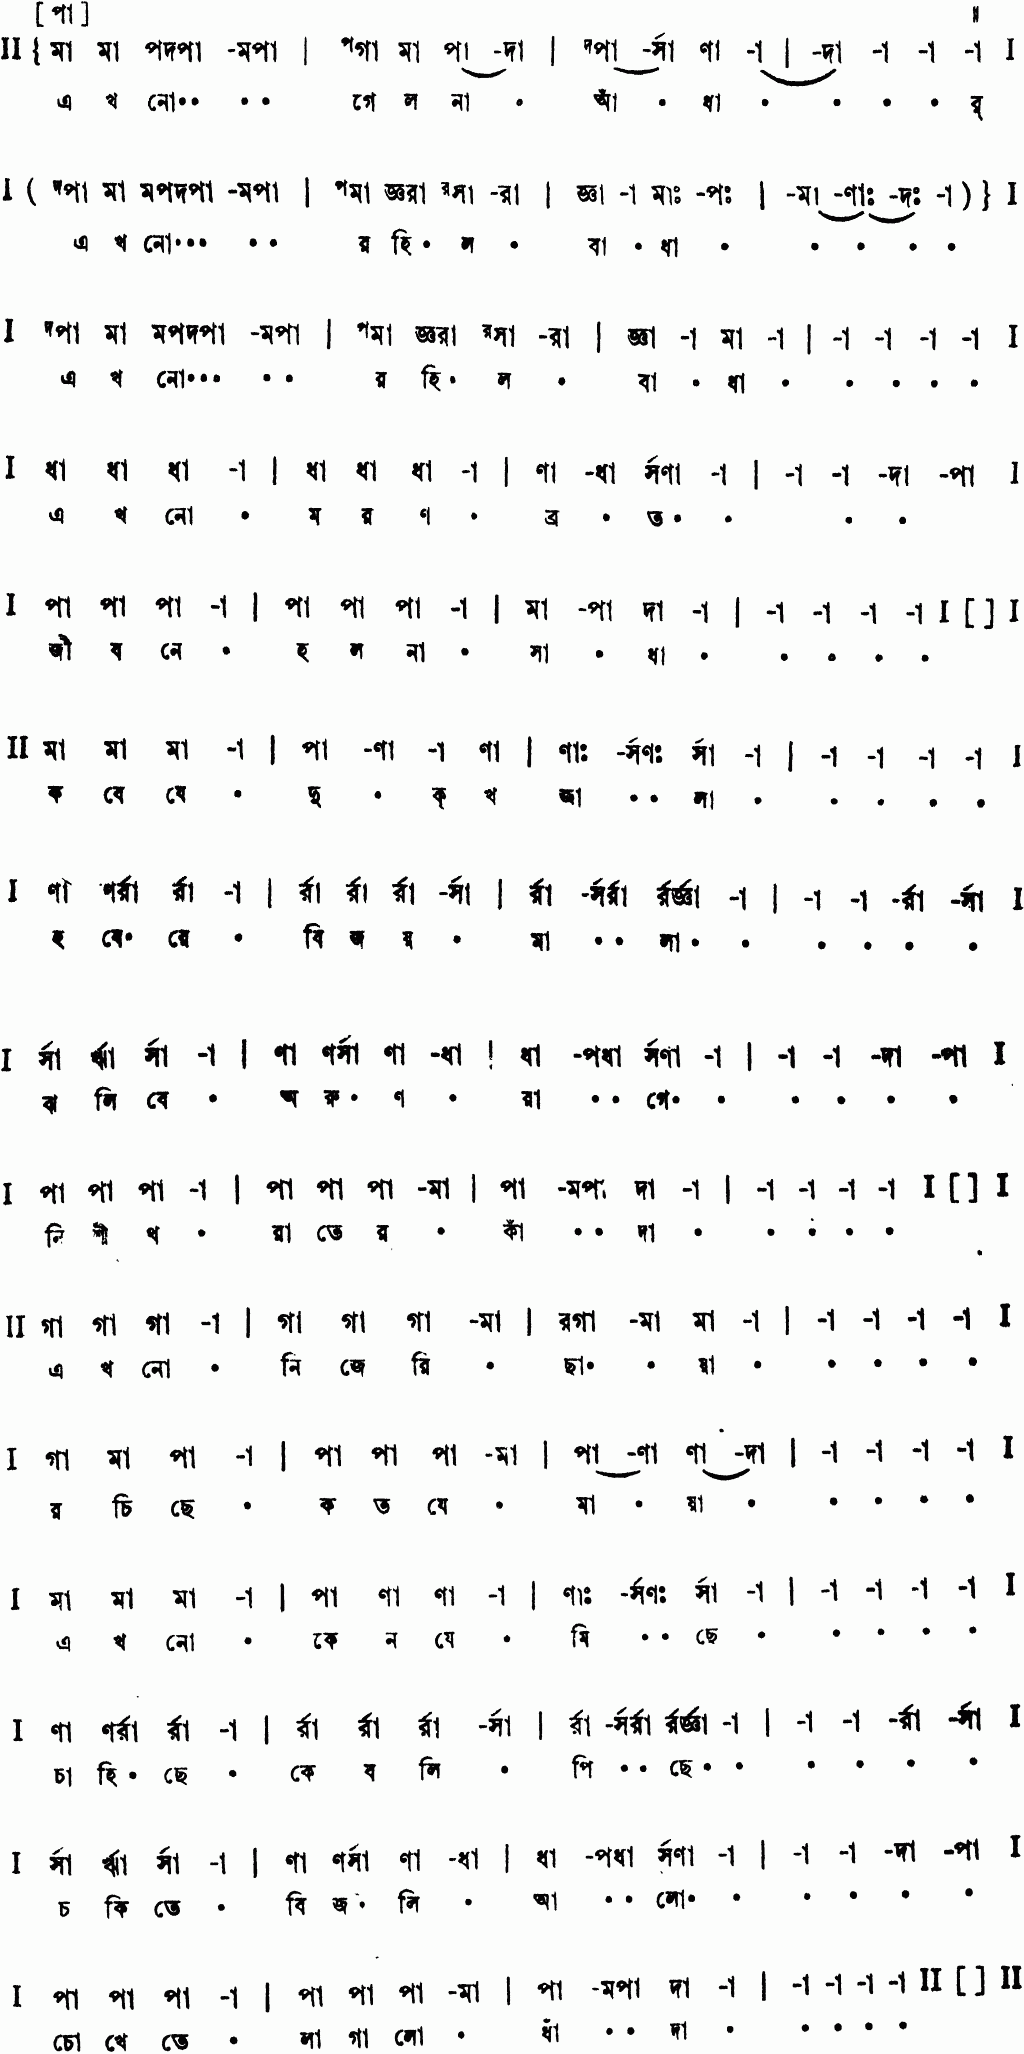 [ পা ] ॥
II { মা মা পদপা -মপা | ᵖগা মা পা -দা | ᵈপা -র্সা ণা -া | -দা -া -া -া I
এ খ নো•• •• গে ল না • আঁ • ধা • • • • র্
I ( দপা মা মপদপা -মপা | পমা জ্ঞরা রসা -রা | জ্ঞা -া মাঃ -পঃ | -মা -ণাঃ -দঃ -া ) } I
এ খ নো••• •• র হি• ল • বা • ধা • • • • •
I দপা মা মপদপা -মপা | পমা জ্ঞরা রসা -রা | জ্ঞা -া মা -া | -া -া -া -া I
এ খ নো••• •• র হি• ল • বা • ধা • • • • •
I ধা ধা ধা -া | ধা ধা ধা -া | ণা -ধা র্সণা -া | -া -া -দা -পা I
এ খ নো • ম র ণ • ব্র • ত• • • •
I পা পা পা -া | পা পা পা -া | মা -পা দা -া | -া -া -া -া I [ ] I
জী ব নে • হ ল না • সা • ধা • • • • •
II মা মা মা -া | পা -ণা -া ণা | ণাঃ -র্সণঃ র্সা -া | -া -া -া -া I
ক বে যে দু • ক্ খ জ্বা •• লা • • • • •
I ণা ণর্রা র্রা -া | র্রা র্রা র্রা -র্সা | র্রা -র্সর্রা র্রর্জ্ঞা -া | -া -া -র্রা -র্সা I
হ বে• রে • বি জ য় • মা •• লা• • • • • •
I র্সা র্ঋা র্সা -া | ণা ণর্সা ণা -ধা | ধা -পধা র্সণা -া | -া -া -দা -পা I
ঝ লি বে • অ রু• ণ • রা •• গে• • • • • •
I পা পা পা -া | পা পা পা -মা | পা -মপা দা -া | -া -া -া -া I [ ] I
নি শী থ • রা তে র • কাঁ •• দা • • • • •
II গা গা গা -া | গা গা গা -মা | রগা -মা মা -া | -া -া -া -া I
এ খ নো • নি জে রি • ছা• • য়া • • • • •
I গা মা পা -া | পা পা পা -মা | পা -ণা ণা -দা | -া -া -া -া I
র চি ছে • ক ত যে • মা • য়া • • • • •
I মা মা মা -া | পা ণা ণা -া | ণাঃ -র্সণঃ র্সা -া | -া -া -া -া I
এ খ নো • কে ন যে • মি •• ছে • • • • •
I ণা ণর্রা র্রা -া | র্রা র্রা র্রা -র্সা | র্রা -র্সর্রা র্রর্জ্ঞা -া | -া -া -র্রা -র্সা I
চা হি• ছে • কে ব লি • পি •• ছে• • • • • •
I র্সা র্ঋা র্সা -া | ণা ণর্সা ণা -ধা | ধা -পধা র্সণা -া | -া -া -দা -পা I
চ কি তে • বি জ• লি • আ •• লো• • • • • •
I পা পা পা -া | পা পা পা -মা | পা -মপা দা -া | -া -া -া -া II [ ] II
চো খে তে • লা গা লো • ধাঁ •• দা • • • • •